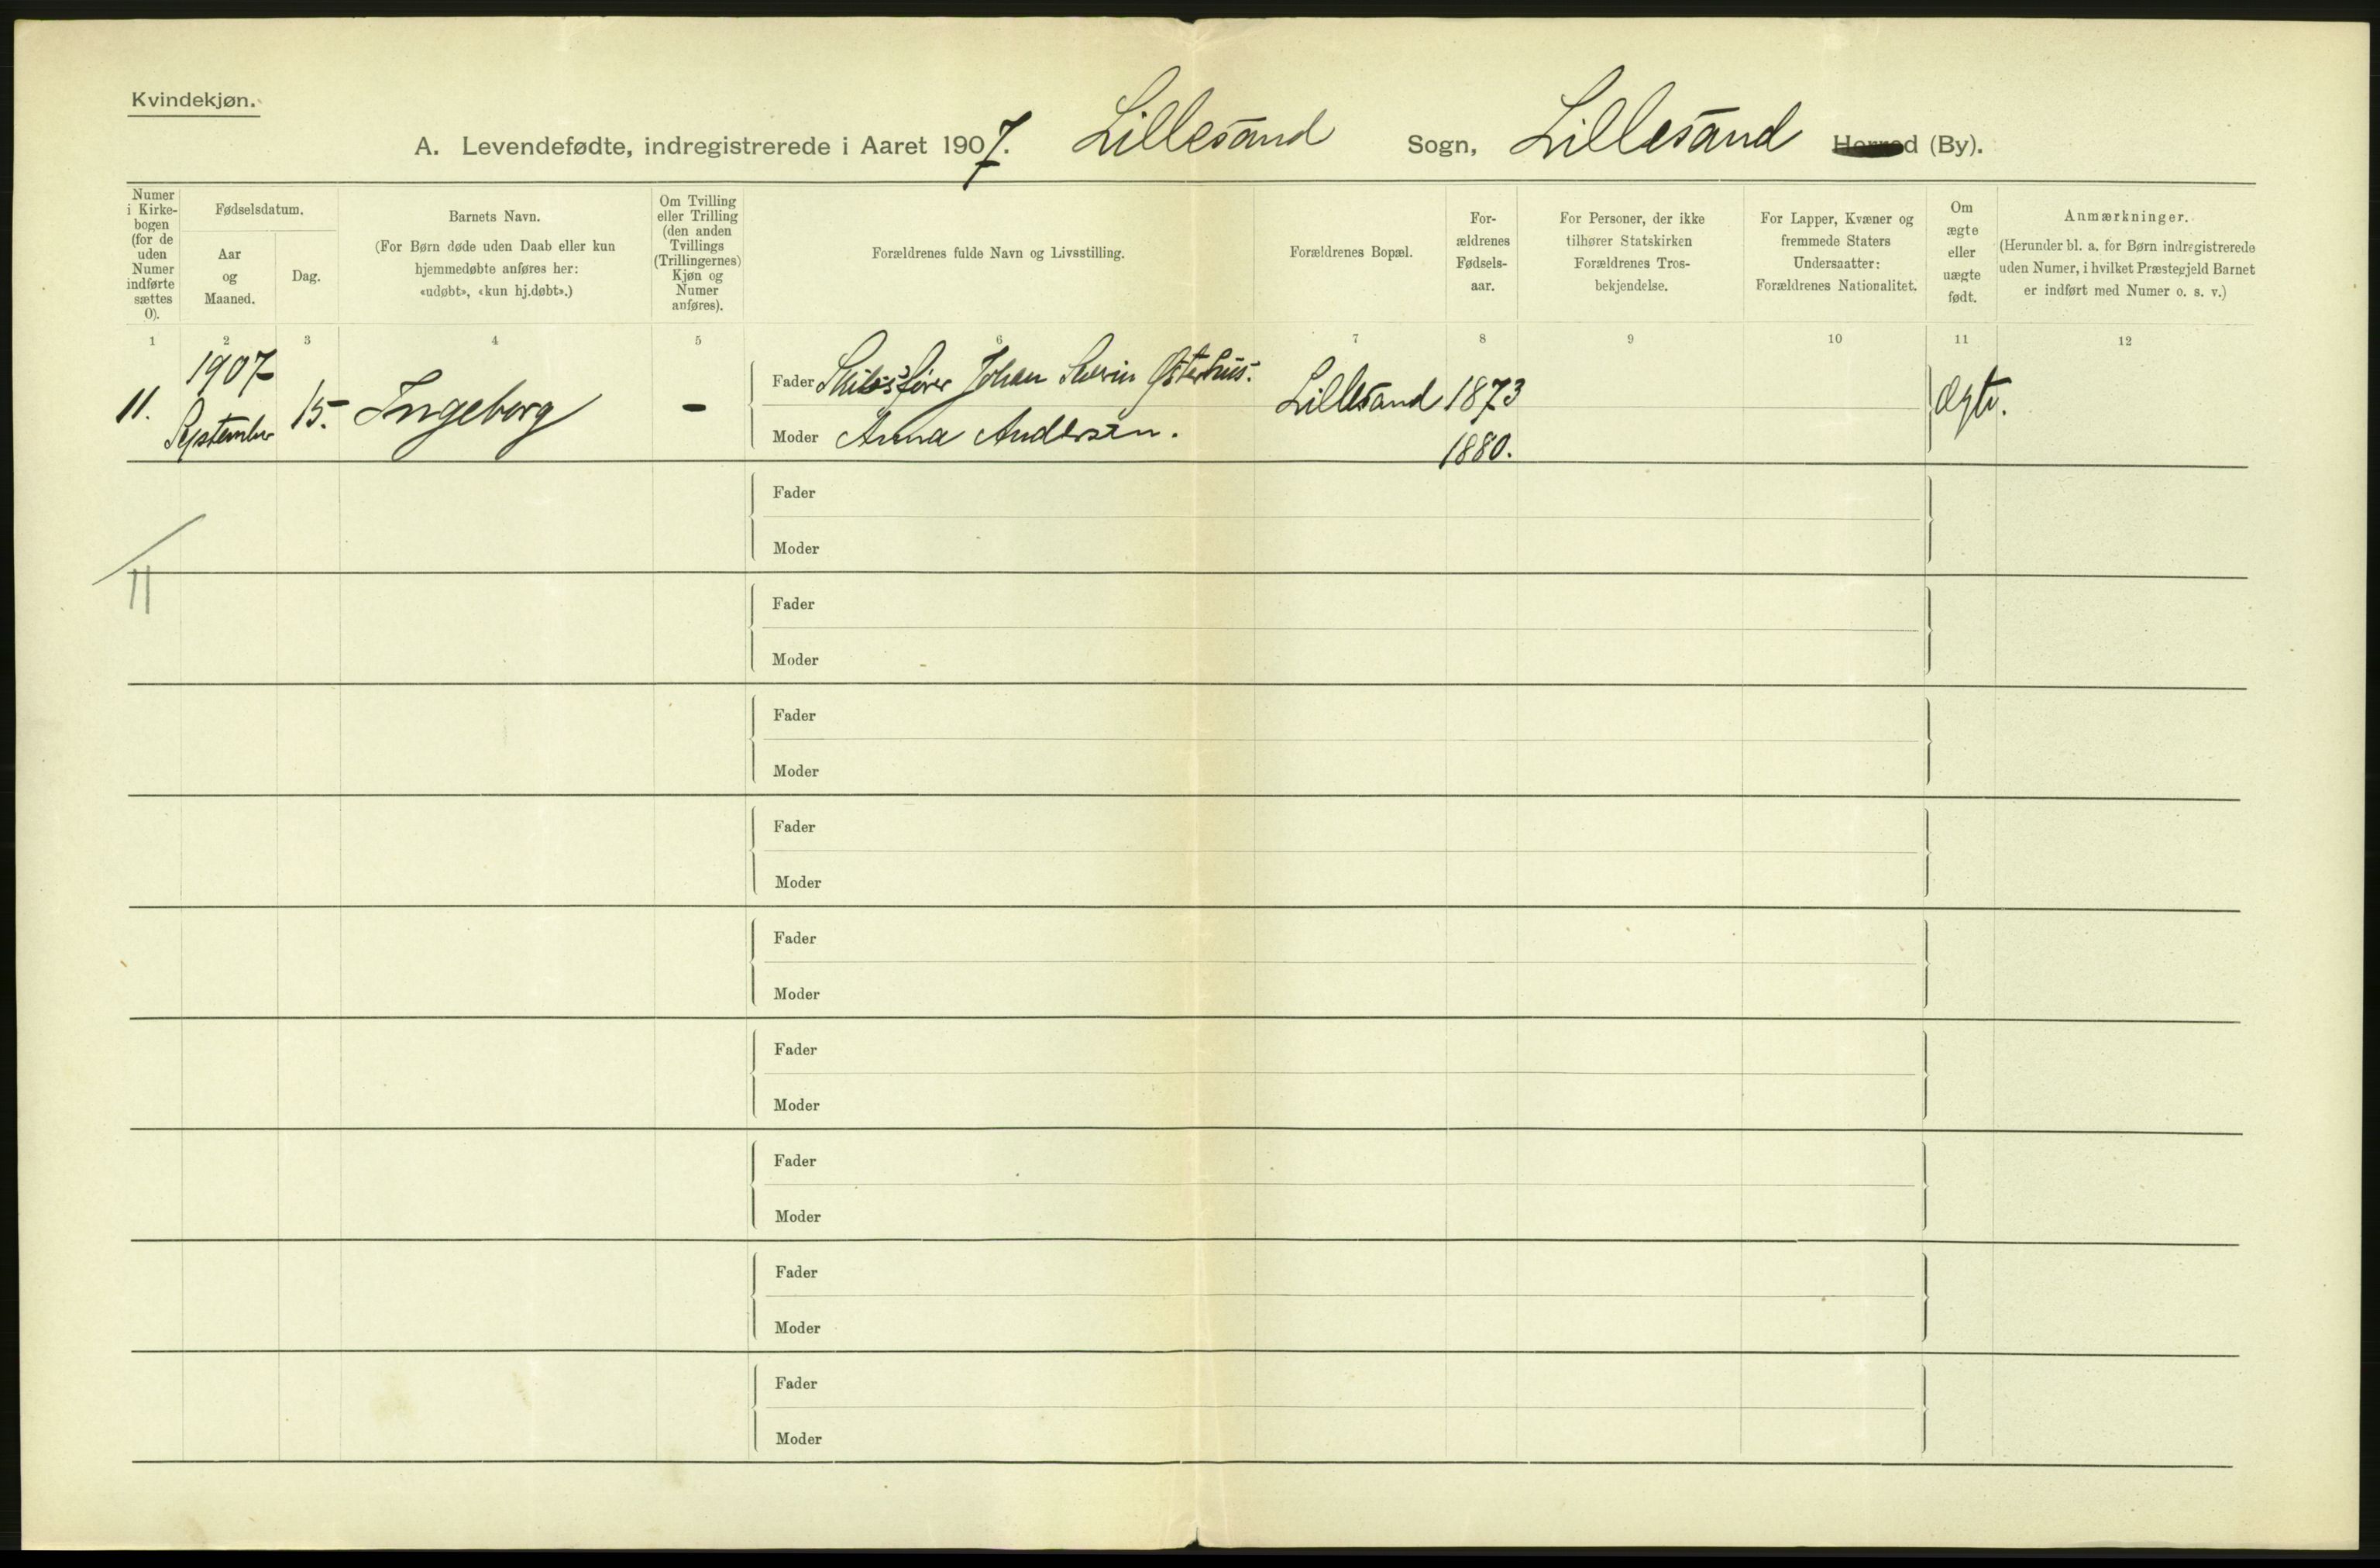 Kvindekjøn.
A. Levendefødte, indregistrerede i Aaret 1907. Lillesand Sogn, Lillesand Herred (By).
Numer i Kirkebogen (for de uden Numer indførte sættes 0).
Fødselsdatum.
Aar og Maaned.
Dag.
Barnets Navn.
(For Børn døde uden Daab eller kun hjemmedøbte anføres her: «udøbt», «kun hj.døbt».)
Om Tvilling eller Trilling (den anden Tvillings (Trillingernes) Kjøn og Numer anføres).
Forældrenes fulde Navn og Livsstilling.
Forældrenes Bopæl.
For-
ældrenes
Fødsels-
aar.
For Personer, der ikke
tilhører Statskirken
Forældrenes Tros-
bekjendelse.
For Lapper, Kvæner og
fremmede Staters
Undersaatter:
Forældrenes Nationalitet.
Om
ægte
eller
uægte
født.
Anmærkninger.
(Herunder bl. a. for Børn indregistrerede
uden Numer, i hvilket Præstegjeld Barnet
er indført med Numer o. s. v.)
1 2 3 4 5 6 7 8 9 10 11 12
11. 1907 September 15. Ingeborg - Fader Skibsfører Johan Severin Østerhus. Lillesand 1873 Ægte.
Moder Anna Andersen. 1880.
Fader
Moder
11
Fader
Moder
Fader
Moder
Fader
Moder
Fader
Moder
Fader
Moder
Fader
Moder
Fader
Moder
Fader
Moder